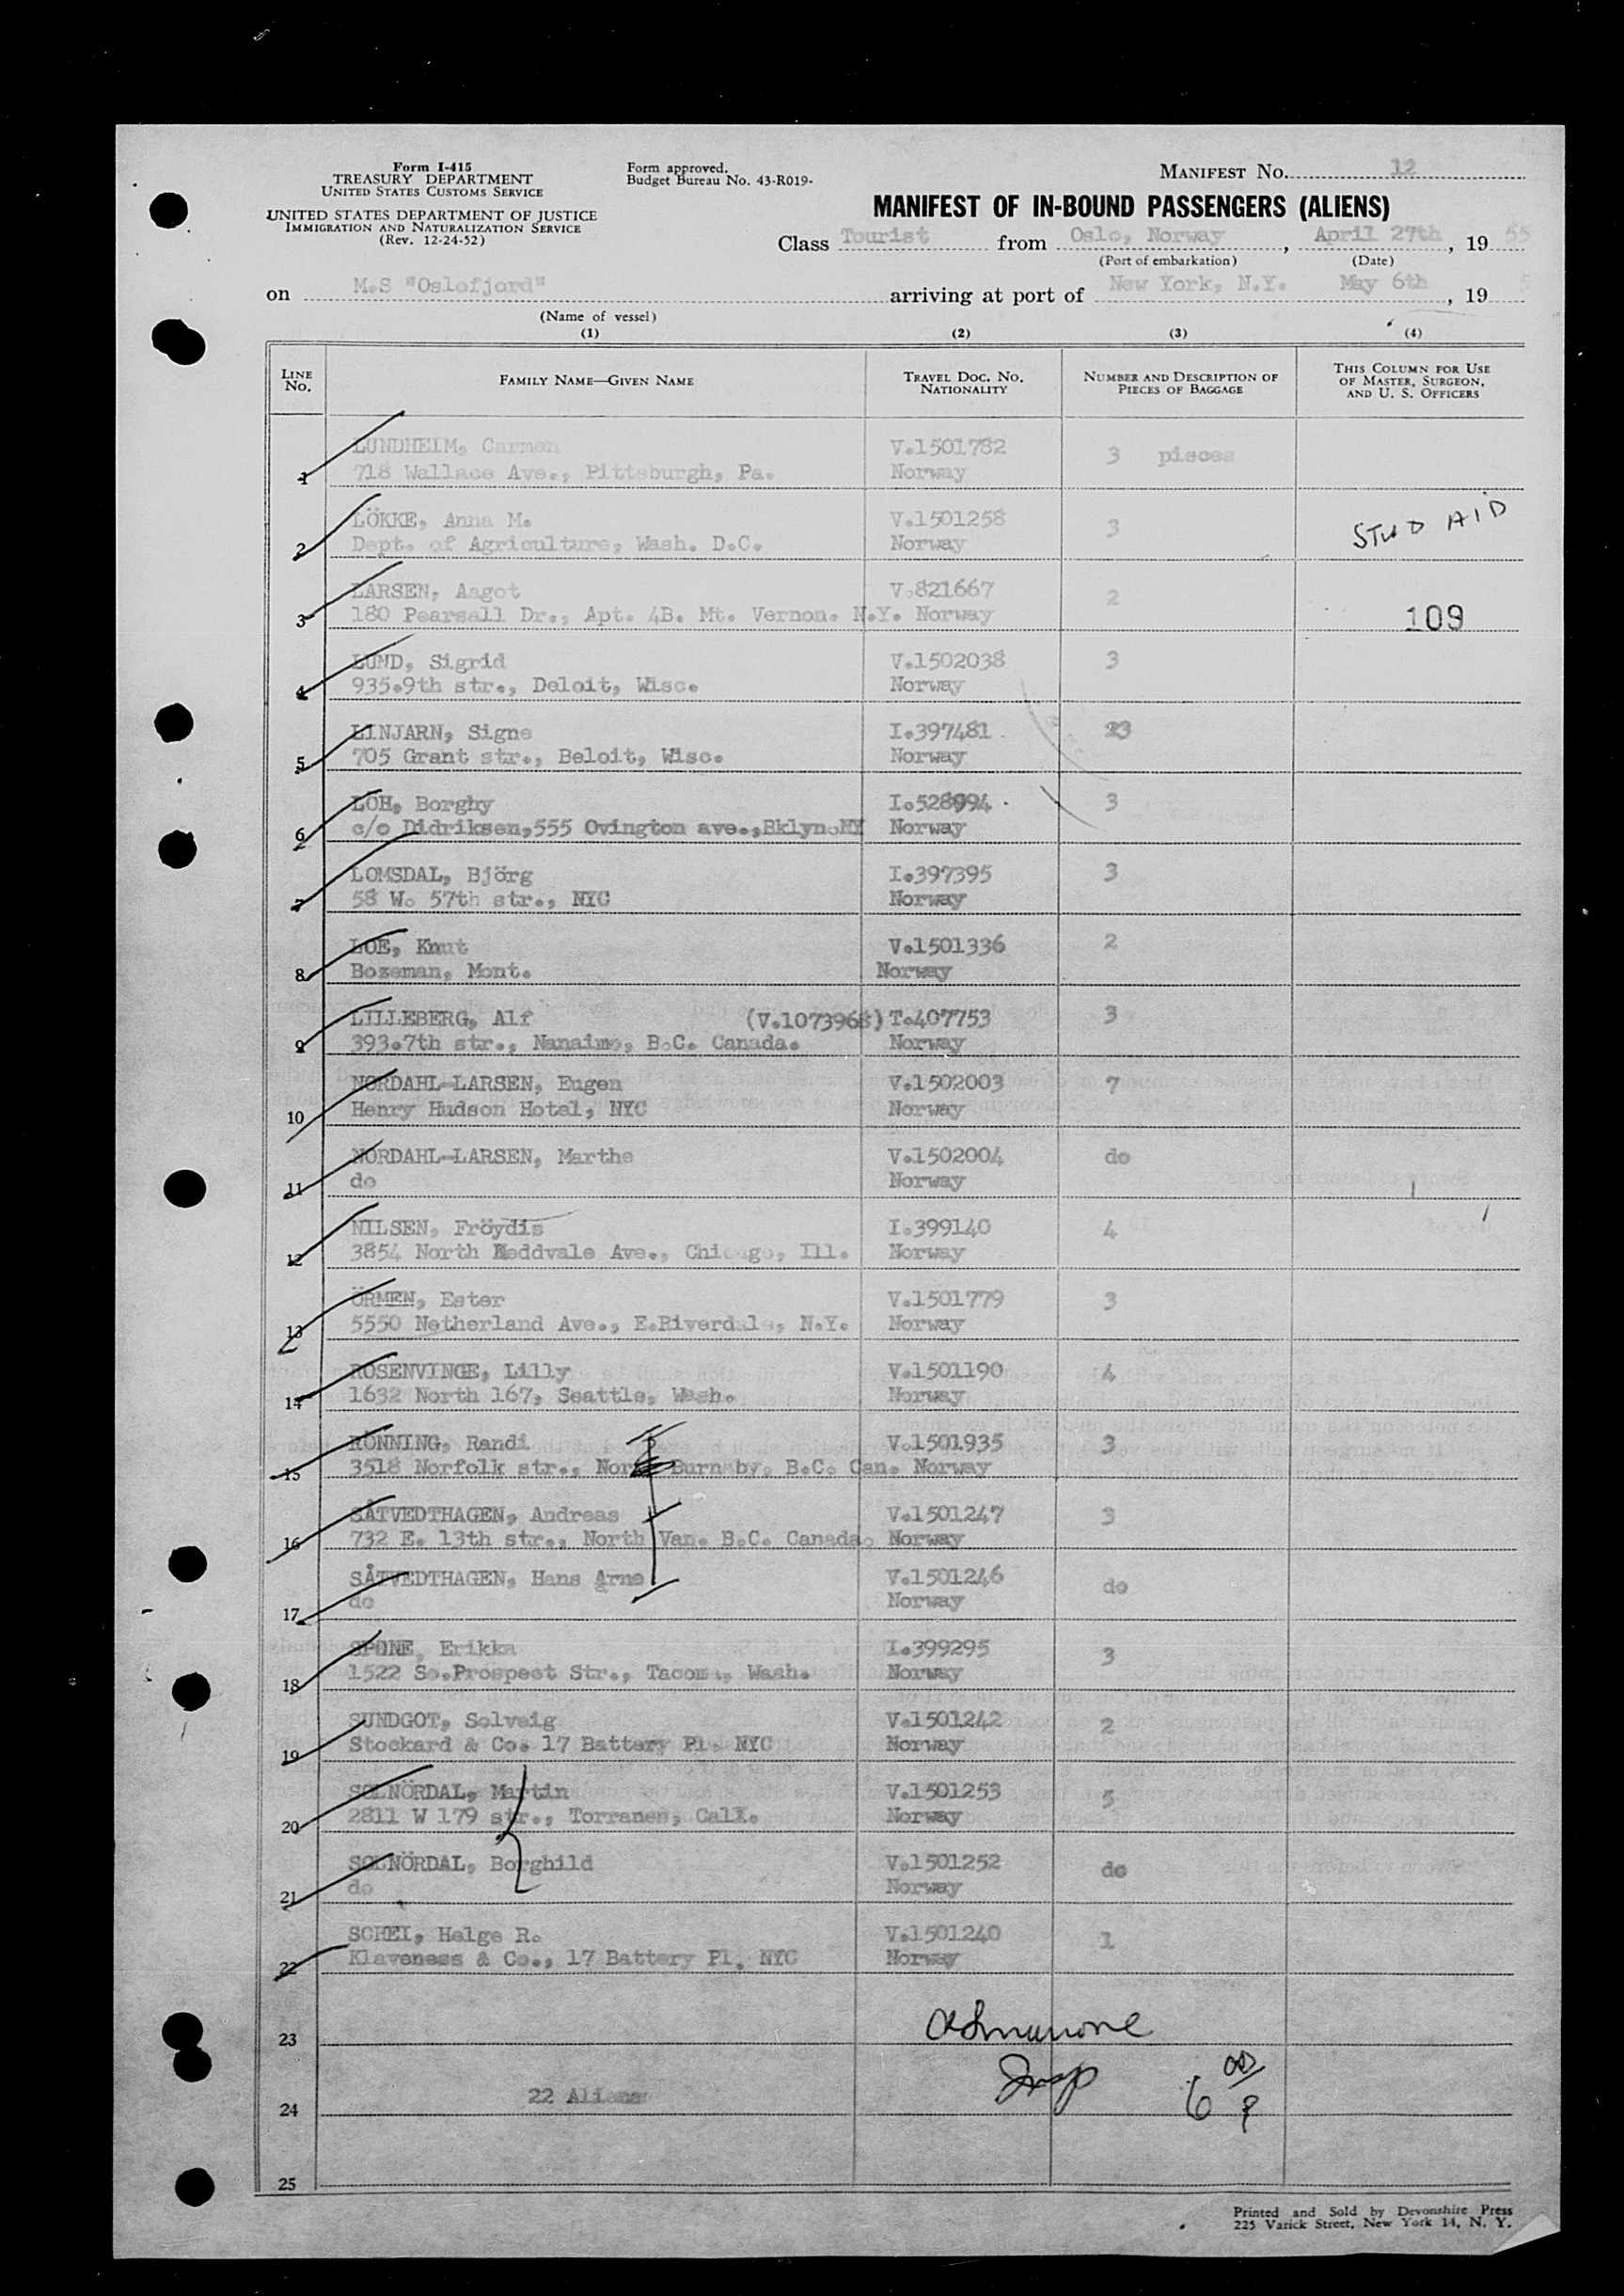 Form I-415
TREASURY DEPARTMENT
UNITED STATES CUSTOMS SERVICE
UNITED STATES DEPARTMENT OF JUSTICE
IMMIGRATION AND NATURALIZATION SERVICE
(Rev. 12-24-52)
Form approved.
Budget Bureau No. 43-R019-
MANIFEST No. 12
MANIFEST OF IN-BOUND PASSENGERS (ALIENS)
Class Tourist from Oslo, Norway, April 27th, 19 55
(Port of embarkation) (Date)
on M.S "Oslofjord" arriving at port of New York, N.Y. May 6th, 19 5
(Name of vessel)
(1) (2) (3) (4)
LINE No. FAMILY NAME—GIVEN NAME TRAVEL DOC. No. NATIONALITY NUMBER AND DESCRIPTION OF PIECES OF BAGGAGE THIS COLUMN FOR USE OF MASTER, SURGEON, AND U. S. OFFICERS
LUNDHEIM, Carmen V.1501782 3 pieces
1 718 Wallace Ave., Pittsburgh, Pa. Norway
LÖKKE, Anna M. V.1501258 3 STUD AID
2 Dept. of Agriculture, Wash. D.C. Norway
LARSEN, Aagot V.821667 2
3 180 Pearsall Dr., Apt. 4B. Mt. Vernon. N.Y. Norway 109
LUND, Sigrid V.1502038 3
4 935.9th str., Deloit, Wisc. Norway
LINJARN, Signe I.397481 3
5 705 Grant str., Beloit, Wisc. Norway
LOH, Borghy I.528994 3
6 c/o Didriksen,555 Ovington ave.,Bklyn.NY Norway
LOMSDAL, Björg I.397395 3
7 58 W. 57th str., NYC Norway
LOE, Knut V.1501336 2
8 Bozeman, Mont. Norway
LILLEBERG, Alf (V.1073968) T.407753 3
9 393.7th str., Nanaimo, B.C. Canada. Norway
NORDAHL-LARSEN, Eugen V.1502003 7
10 Henry Hudson Hotel, NYC Norway
NORDAHL-LARSEN, Marthe V.1502004 do
11 do Norway
NILSEN, Fröydis I.399140 4
12 3854 North Neddvale Ave., Chicago, Ill. Norway
ÖRMEN, Ester V.1501779 3
13 5550 Netherland Ave., E.Riverdale, N.Y. Norway
ROSENVINGE, Lilly V.1501190 4
14 1632 North 167, Seattle, Wash. Norway
RÖNNING, Randi V.1501935 3
15 3518 Norfolk str., North Burnaby, B.C. Can. Norway
SÅTVEDTHAGEN, Andreas V.1501247 3
16 732 E. 13th str., North Van. B.C. Canada. Norway
SÅTVEDTHAGEN, Hans Arne V.1501246 do
17 do Norway
SPONE, Erikka I.399295 3
18 1522 So.Prospect Str., Tacoma, Wash. Norway
SUNDGOT, Solveig V.1501242 2
19 Stockard & Co. 17 Battery Pl. NYC Norway
SOLNÖRDAL, Martin V.1501253 5
20 2811 W 179 str., Torranes, Calif. Norway
SOLNÖRDAL, Borghild V.1501252 do
21 do Norway
SCHEI, Helge R. V.1501240 1
22 Klaveness & Co., 17 Battery Pl. NYC Norway
23
Insp 6 00/P
24 22 Aliens
25
Printed and Sold by Devonshire Press
225 Varick Street, New York 14, N. Y.